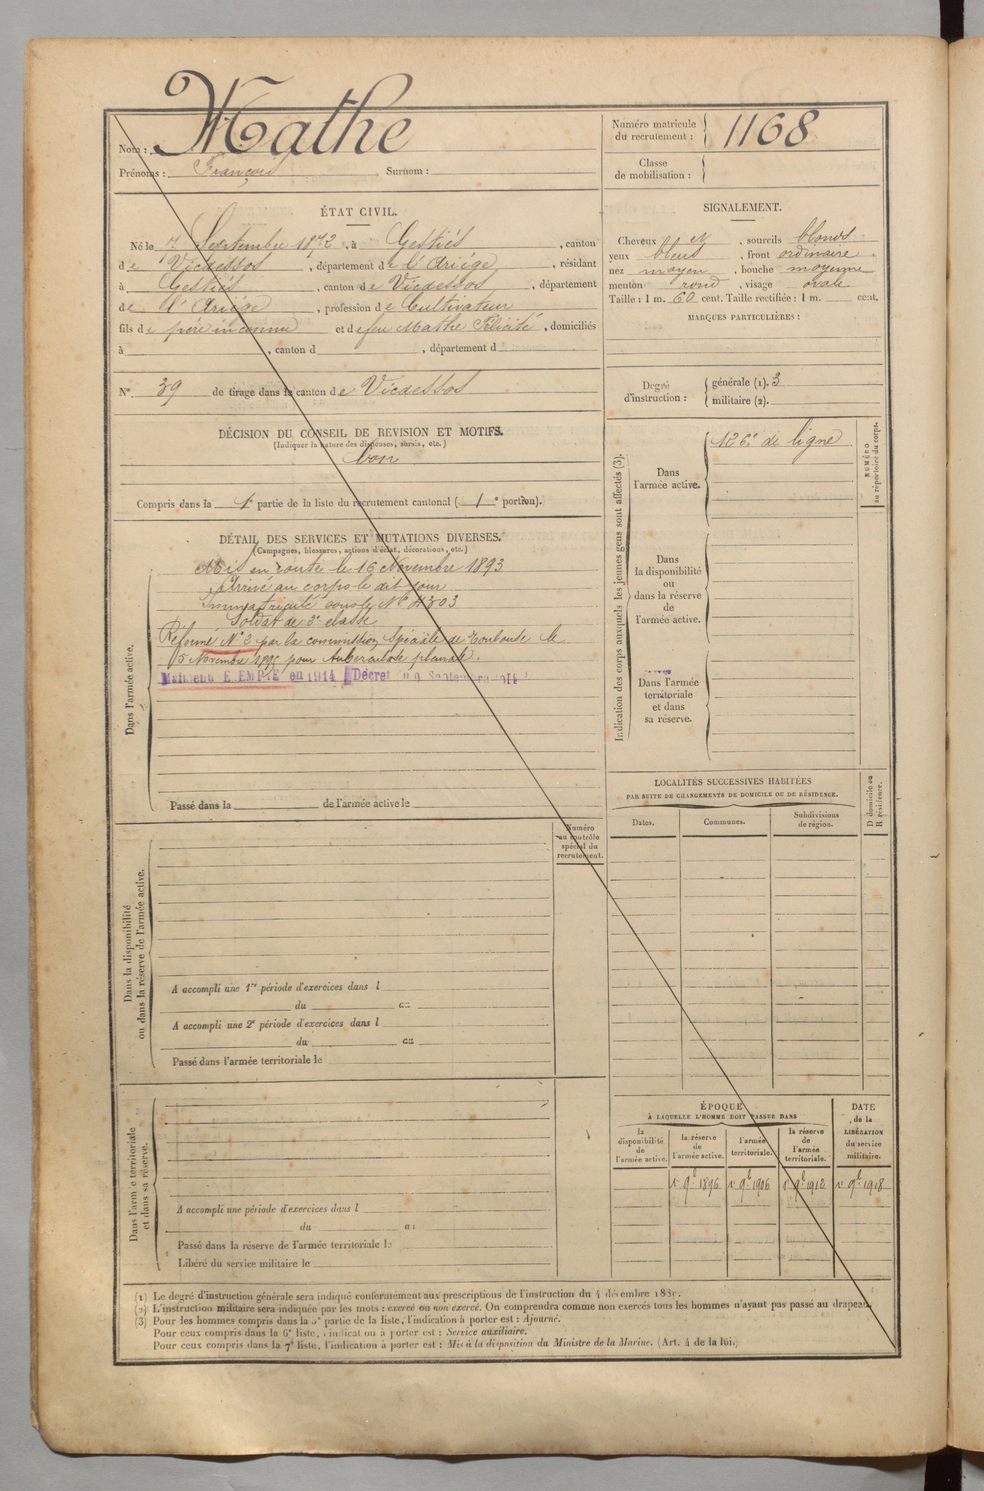 Nom : Mathe
Prénoms : François Surnom :
Numéro matricule
du recrutement : 1168
Classe
de mobilisation :
ÉTAT CIVIL.
Né le 7 Septembre 1872, à Gestiés, canton
de Vicdessos, département de l'Ariége, résidant
à Gestiés, canton de Vicdessos, département
de l'Ariége, profession de Cultivateur
fils de père inconnu et de feu Mathe Félicité, domiciliés
à , canton d , département d
N° 39 de tirage dans le canton de Vicdessos
DÉCISION DU CONSEIL DE REVISION ET MOTIFS.
(Indiquer la nature des dispenses, sursis, etc.)
bon
Compris dans la 1e partie de la liste du recrutement cantonal ( 1e portion).
SIGNALEMENT.
Cheveux et , sourcils blonds
yeux bleus , front ordinaire
nez moyen , bouche moyenne
menton rond , visage ovale
Taille : 1 m. 60 cent. Taille rectifiée : 1 m. cent.
MARQUES PARTICULIÈRES :
Degré
d'instruction :
générale (1). 3
militaire (2).
DÉTAIL DES SERVICES ET MUTATIONS DIVERSES.
(Campagnes, blessures, actions d'éclat, décorations, etc.)
Dans l'armée active.
Mis en route le 16 Novembre 1893
Arrivé au corps le dit jour
Immatriculé sous le N° 4303
Soldat de 2e classe
Réformé N° 2 par la commission spéciale de Toulouse le
15 Novembre pour tuberculose
Maintenu EXEMPTÉ en 1914 Décret du 9 Septembre 1914
Passé dans la de l'armée active le
Indication des corps auxquels les jeunes gens sont affectés (3).
Dans
l'armée active.
126e de ligne
NUMÉRO
au répertoire du corps.
Dans
la disponibilité
ou
dans la réserve
de
l'armée active.
Dans l'armée
territoriale
et dans
sa réserve.
LOCALITÉS SUCCESSIVES HABITÉES
PAR SUITE DE CHANGEMENTS DE DOMICILE OU DE RÉSIDENCE.
Dates. Communes. Subdivisions
de région.
D domicile ou
R résidence.
Numéro
au contrôle
spécial du
recrutement.
Dans la disponibilité
ou dans la réserve de l'armée active.
A accompli une 1re période d'exercices dans l
du au
A accompli une 2e période d'exercices dans l
du au
Passé dans l'armée territoriale le
Dans l'armée territoriale
et dans sa réserve.
A accompli une période d'exercices dans l
du au
Passé dans la réserve de l'armée territoriale le
Libéré du service militaire le
ÉPOQUE
À LAQUELLE L'HOMME DOIT PASSER DANS
la
disponibilité
de
l'armée active.
la réserve
de
l'armée active.
l'armée
territoriale.
la réserve
de
l'armée
territoriale.
DATE
de la
LIBÉRATION
du service
militaire.
1 9bre 1896 1 9bre 1906 1 9bre 1912 1 9bre 1918
(1) Le degré d'instruction générale sera indiqué conformément aux prescriptions de l'instruction du 4 décembre 1889.
(2) L'instruction militaire sera indiquée par les mots : exercé ou non exercé. On comprendra comme non exercés tous les hommes n'ayant pas passé au drapeau.
(3) Pour les hommes compris dans la 5e partie de la liste, l'indication à porter est : Ajourné.
Pour ceux compris dans la 6e liste, l'indication à porter est : Service auxiliaire.
Pour ceux compris dans la 7e liste, l'indication à porter est : Mis à la disposition du Ministre de la Marine. (Art. 4 de la loi.)